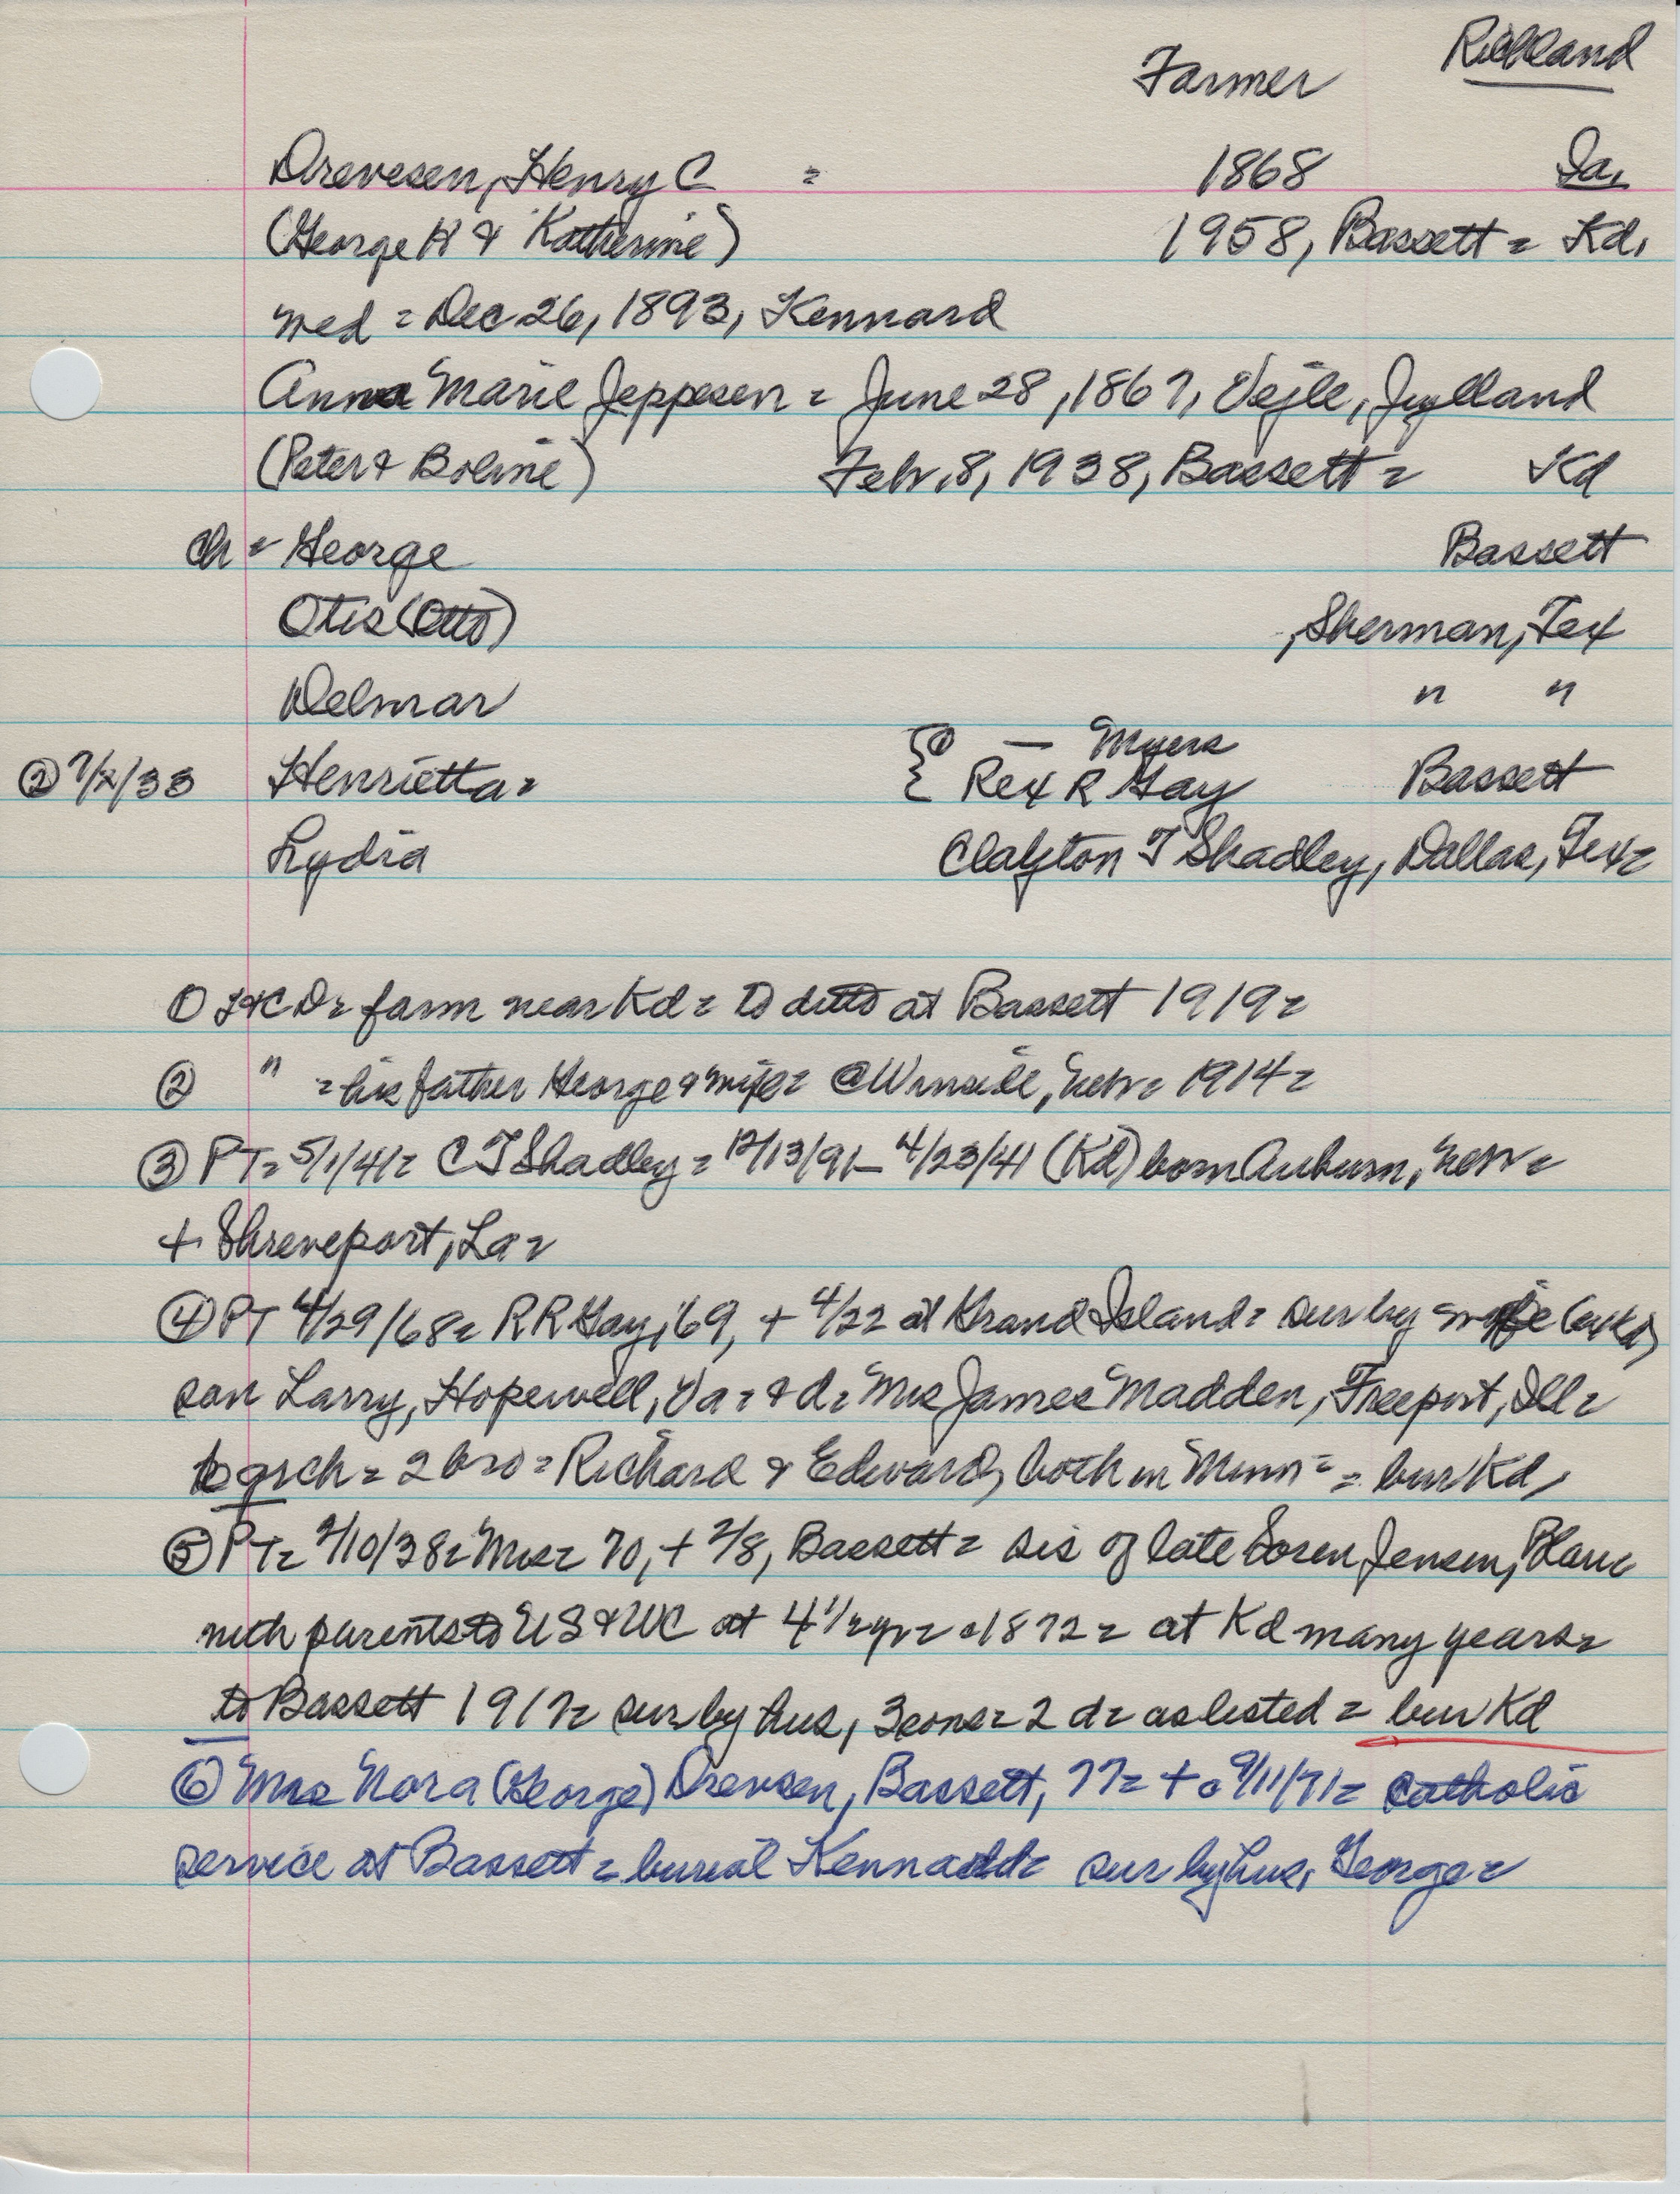 Farmer Richland
Drevesen, Henry C = 1868 Ia.
(George H & Katherine) 1958, Bassett = Kd.
med = Dec 26, 1893, Kennard
Anna Marie Jeppesen = June 28, 1867, Vejle, Jylland
(Peter & Boline) Febr. 8, 1938, Bassett = Kd
ch = George Bassett
Otis (Otto) , Sherman, Tex
Delmar " "
① — Myers
② 7/2/33 Henrietta = Rex R Gay Bassett
Lydia Clayton T Shadley, Dallas, Tex =
① HCD = farm near Kd = to ditto at Bassett 1919 =
② " = his father George & wife = @ Winside, Nebr = 1914 =
③ PT = 5/1/41 = C T Shadley = 12/13/91 – 4/23/41 (Kd) born Auburn, Nebr =
+ Shreveport, La =
④ PT 4/29/68 = R R Gay, 69, + 4/22 at Grand Island = sur by wife
son Larry, Hopewell, Va = & d = Mrs James Madden, Freeport, Ill =
grch = 2 bro = Richard & Edward, both in Minn = = bur Kd,
⑤ PT = 2/10/38 = Mrs = 70, + 2/8, Bassett = sis of late Soren Jensen, Blair
with parents to US & WC at 4 1/2 yr = a 1872 = at Kd many years =
to Bassett 1917 = sur by hus, 3 sons = 2 d = as listed = bur Kd
⑥ Mrs Nora (George) Drevsen, Bassett, 77 = + a 9/11/71 = Catholic
service at Bassett = burial Kennard = sur by hus, George =